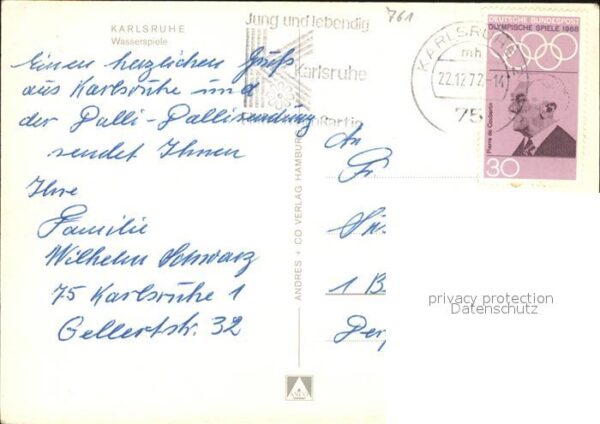 KARLSRUHE
Wasserspiele
Einen herzlichen Gruß
aus Karlsruhe und
der Dalli-Dallisendung
sendet Ihnen
Ihre
Familie
Wilhelm Schwarz
75 Karlsruhe 1
Gellertstr. 32
ANDRES + CO VERLAG HAMBURG
ANCO
Jung und lebendig
Karlsruhe
761
KARLSRUHE
mh
22.12.72-14
75
DEUTSCHE BUNDESPOST
OLYMPISCHE SPIELE 1968
Pierre de Coubertin
30
An
1 B
privacy protection
Datenschutz